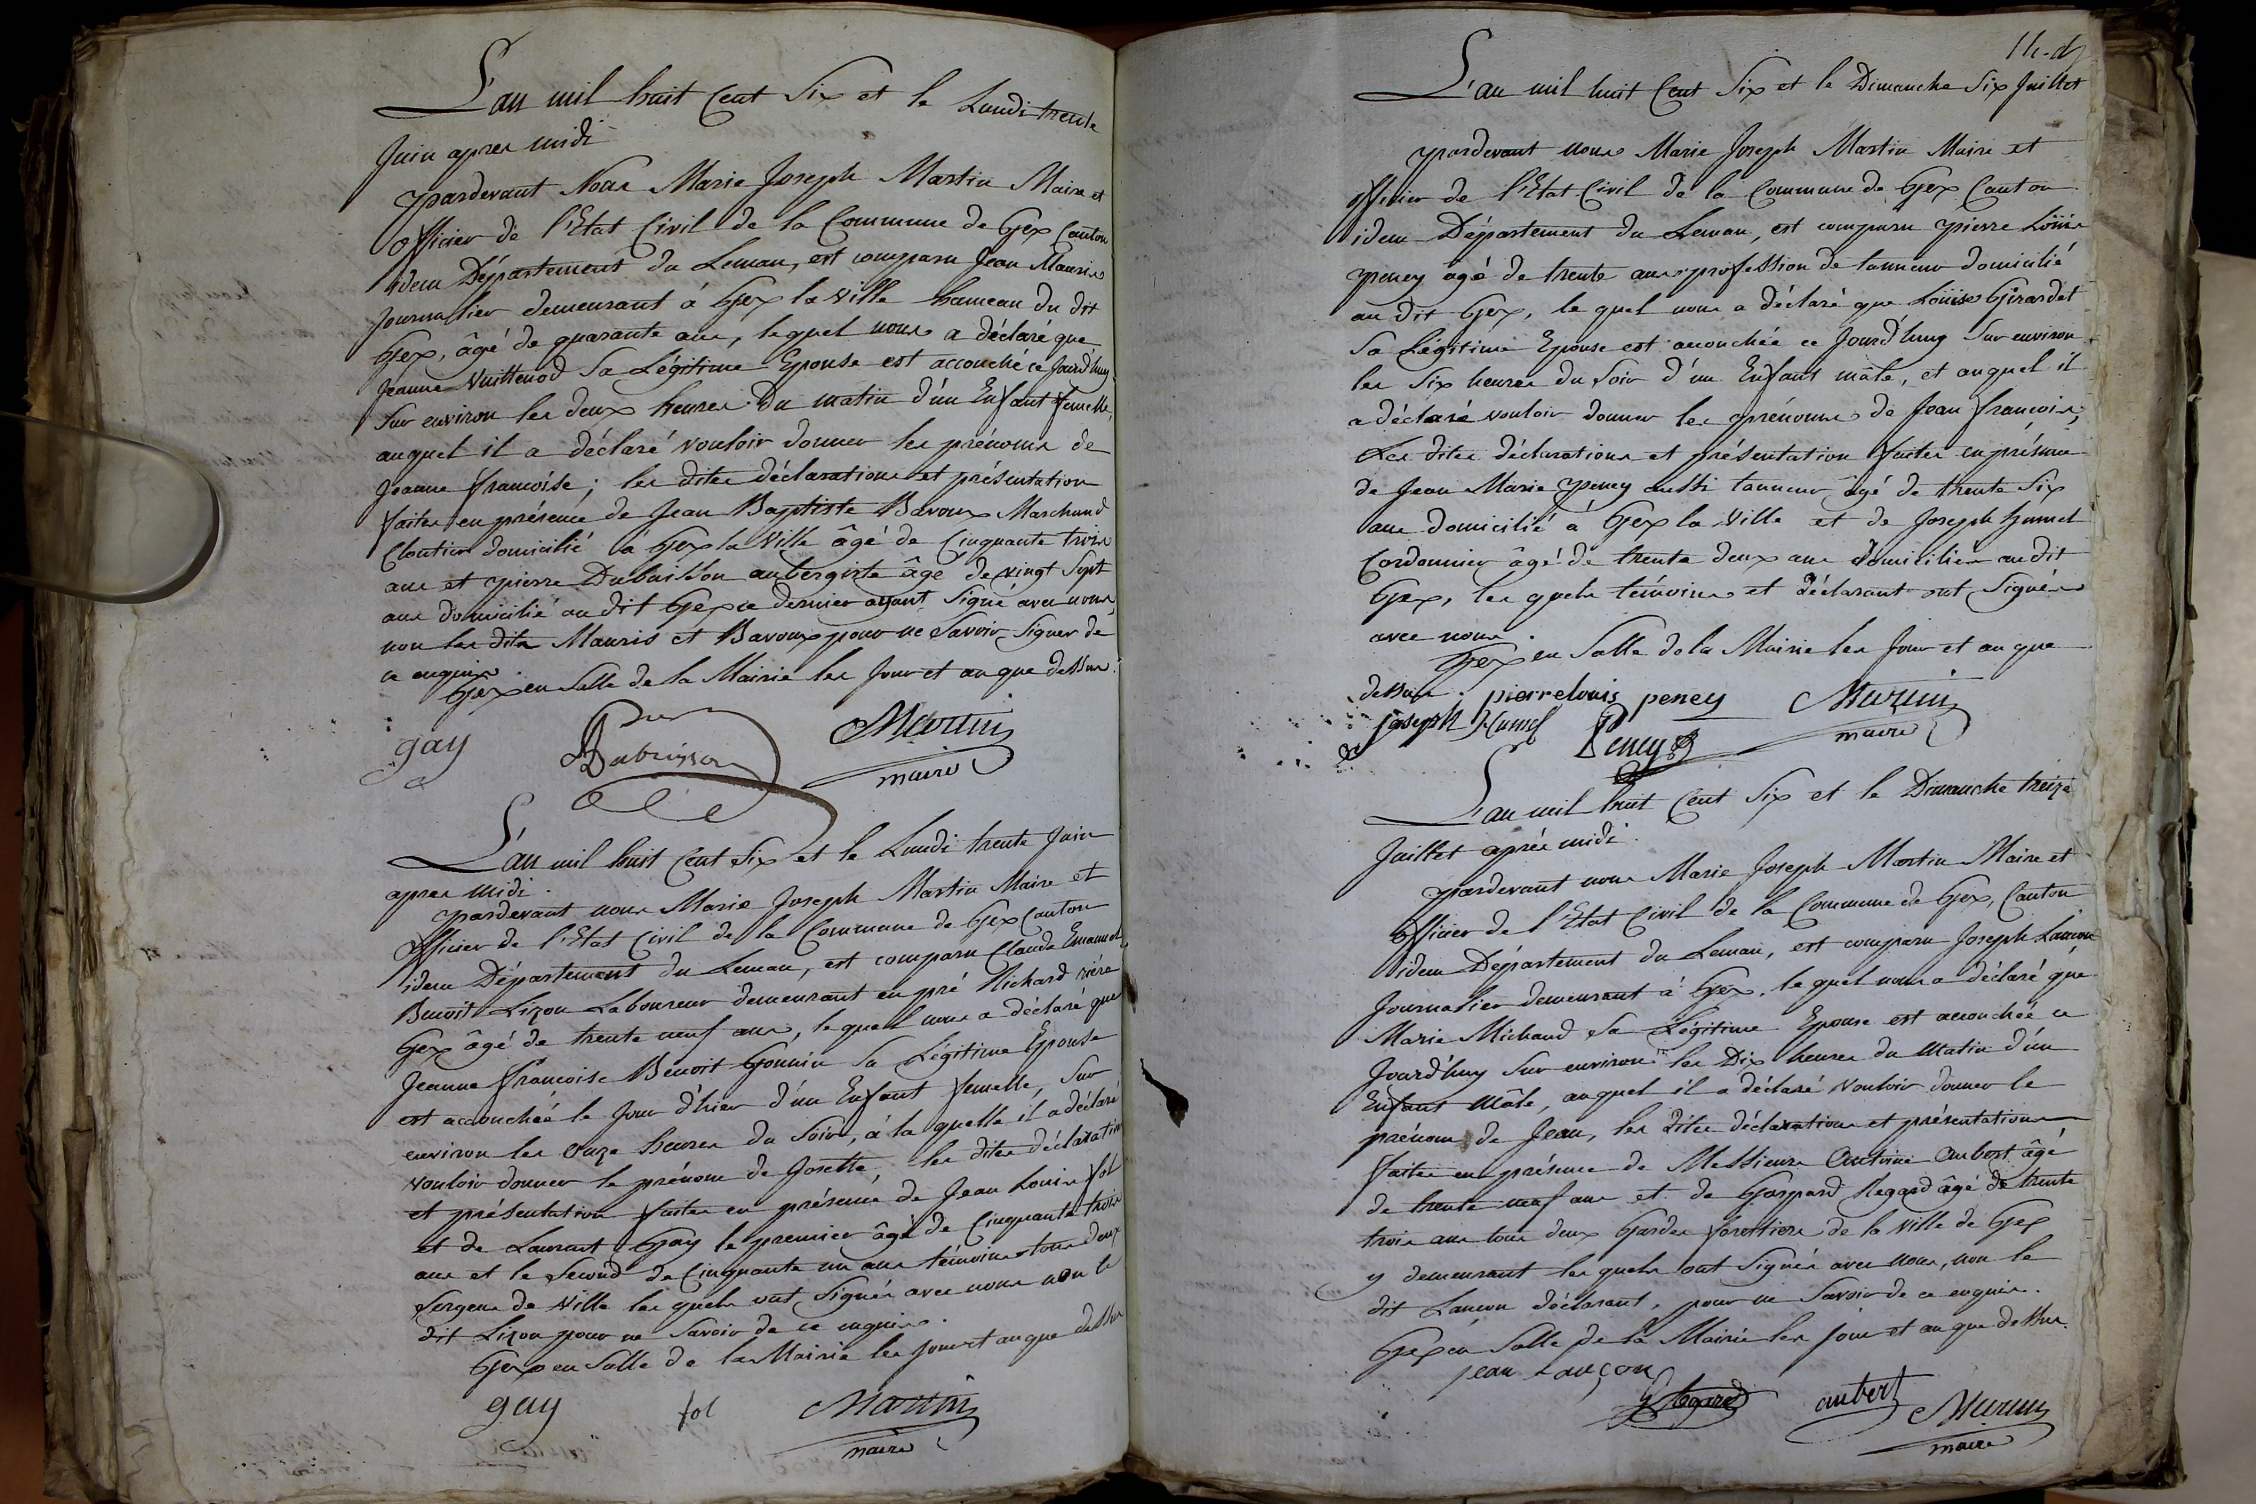 L'an mil huit Cent Six et le Lundi trente
Juin apres midi
pardevant Nous Marie Joseph Martin Maire et
officier de l'Etat Civil de la Commune de Gex Canton
idem Département du Leman, est comparu Jean Mauris
Journalier demeurant à Gex la ville hameau du dit
Gex, âgé de quarante ans, lequel nous a déclaré que
Jeanne Vuillenod Sa Légitime Epouse est accouché ce Jourd'huy
Sur environ les deux heures du matin d'un Enfant femelle,
auquel il a déclaré vouloir donner les prénoms de
Jeanne françoise; les dites déclarations et présentation
faites en présence de Jean Baptiste Bavoux Marchand
Cloutier domicilié à Gex la Ville âgé de Cinquante trois
ans et pierre Dubuisson aubergiste âgé de vingt Sept
ans domicilié au dit Gex ce dernier ayant Signé avec nous,
non les dits Mauris et Bavoux pour ne Savoir Signer de
ce enquis.
Gex en Salle de la Mairie les Jour et an que dessus.
gay Dubuisson Martin
maire
L'an mil huit Cent Six et le Lundi trente Juin
apres midi.
pardevant nous Marie Joseph Martin Maire et
officier de l'Etat Civil de la Commune de Gex Canton
idem Département du Leman, est comparu Claude Emanuel
Benoit Lizon Laboureur demeurant en pré Richard rière
Gex âgé de trente neuf ans, lequel nous a déclaré que
Jeanne françoise Benoit Gonnin Sa Légitime Epouse
est accouchée le Jour d'hier d'un Enfant femelle, Sur
environ les onze heures du Soir, à la quelle il a déclaré
vouloir donner le prénom de Josette. les dites déclaration
et présentation faites en présence de Jean Louis fol
et de Laurent Gay le premier âgé de Cinquante trois
ans et le Second de Cinquante un ans témoins tous deux
Sergens de Ville les quels ont Signés avec nous non le
dit Lizon pour ne Savoir de ce enquis.
Gex en Salle de la Mairie les Jour et an que dessus
gay fol Martin
maire
L'an mil huit Cent Six et le Dimanche Six Juillet
pardevant nous Marie Joseph Martin Maire et
officier de l'Etat Civil de la Commune de Gex Canton
idem Département du Leman, est comparu pierre Loüis
peney âgé de trente ans profession de tanneur domicilié
au dit Gex, le quel nous a déclaré que Loüise Girardet
Sa Légitime Epouse est accouchée ce Jourd'huy Sur environ
les Six heures du Soir d'un Enfant mâle, et auquel il
a déclaré vouloir donner les prénoms de Jean françois,
Les dites déclarations et présentation faites en présence
de Jean Marie peney aussi tanneur âgé de trente Six
ans domicilié à Gex la Ville et de Joseph humel
Cordonnier âgé de trente deux ans domiciliés au dit
Gex, les quels témoins et déclarant ont Signés
avec nous.
Gex en Salle de la Mairie les Jour et an que
dessus. pierre louis peney Martin
joseph Humel Peney maire
L'an mil huit Cent Six et le Dimanche treize
Juillet après midi.
pardevant nous Marie Joseph Martin Maire et
officier de l'Etat Civil de la Commune de Gex, Canton
idem Département du Leman, est comparu Joseph Lançon
Journalier demeurant à Gex, le quel nous a déclaré que
Marie Michaud Sa Légitime Epouse est accouchée ce
Jourd'huy Sur environ les Dix heures du Matin d'un
Enfant Mâle, auquel il a déclaré Vouloir donner le
prénom de Jean, les dites déclarations et présentations
faites en présence de Messieurs Antoine Aubert âgé
de trente neuf ans et de Gaspard Regard âgé de trente
trois ans tous deux Gardes forestiers de la Ville de Gex
y demeurant les quels ont Signés avec nous, non le
dit Lançon déclarant, pour ne Savoir de ce enquis.
Gex en Salle de la Mairie les jour et an que dessus.
jean Lançon
G Regard aubert Martin
maire